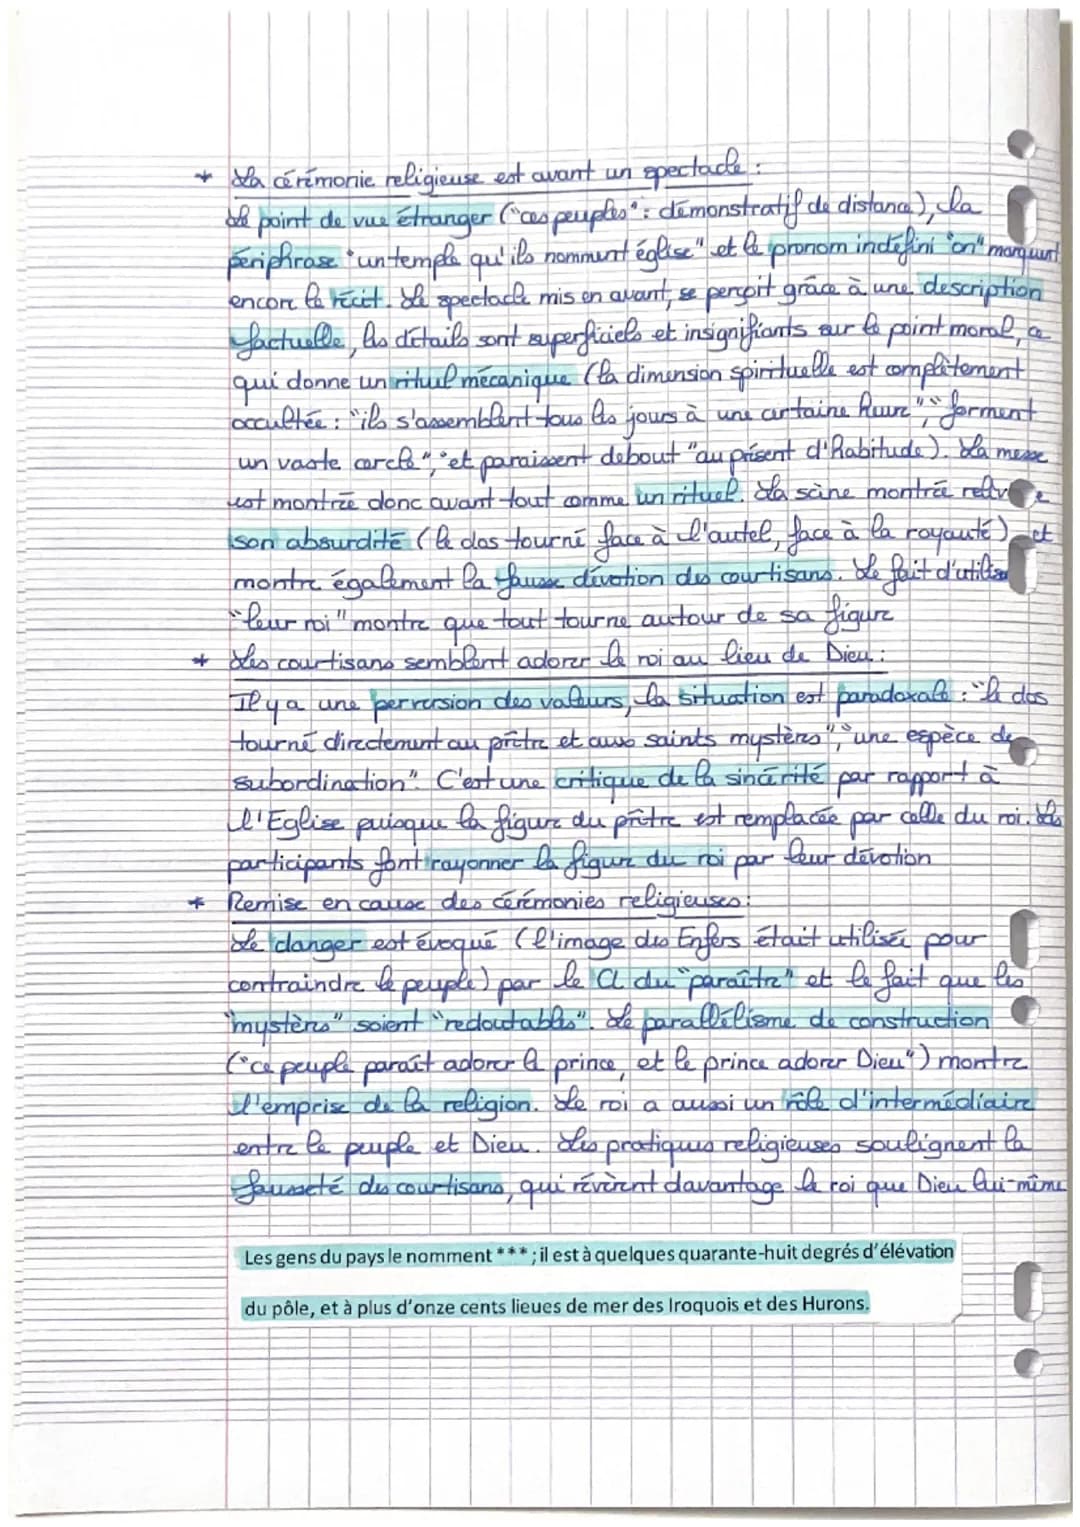 * La cérémonie religieuse est avant un spectacle :
Le point de vue étranger ("ces peuples" : démonstratif de distance), la
périphrase "un temple qu'ils nomment église" et le pronom indéfini "on" marquent
encore le récit. Le spectacle mis en avant, se perçoit grâce à une description
factuelle, les détails sont superficiels et insignifiants sur le point moral, ce
qui donne un rituel mécanique (la dimension spirituelle est complètement
occultée : "ils s'assemblent tous les jours à une certaine heure", "forment
un vaste cercle", "et paraissent debout" au présent d'habitude). La messe
est montrée donc avant tout comme un rituel. La scène montrée relève
son absurdité (le dos tourné face à l'autel, face à la royauté) et
montre également la fausse dévotion des courtisans. Le fait d'utiliser
"leur roi" montre que tout tourne autour de sa figure
* Les courtisans semblent adorer le roi au lieu de Dieu :
Il y a une perversion des valeurs, la situation est paradoxale : "le dos
tourné directement au prêtre et aux saints mystères", "une espèce de
subordination". C'est une critique de la sincérité par rapport à
l'Eglise puisque la figure du prêtre est remplacée par celle du roi. Les
participants font rayonner la figure du roi par leur dévotion
* Remise en cause des cérémonies religieuses :
Le danger est évoqué (l'image des Enfers était utilisée pour
contraindre le peuple) par le CL du "paraître" et le fait que les
"mystères" soient "redoutables". Le parallélisme de construction
("ce peuple paraît adorer le prince, et le prince adorer Dieu") montre
l'emprise de la religion. Le roi a aussi un rôle d'intermédiaire
entre le peuple et Dieu. Les pratiques religieuses soulignent la
fausseté des courtisans, qui révèrent davantage le roi que Dieu lui-même
Les gens du pays le nomment *** ; il est à quelques quarante-huit degrés d'élévation
du pôle, et à plus d'onze cents lieues de mer des Iroquois et des Hurons.